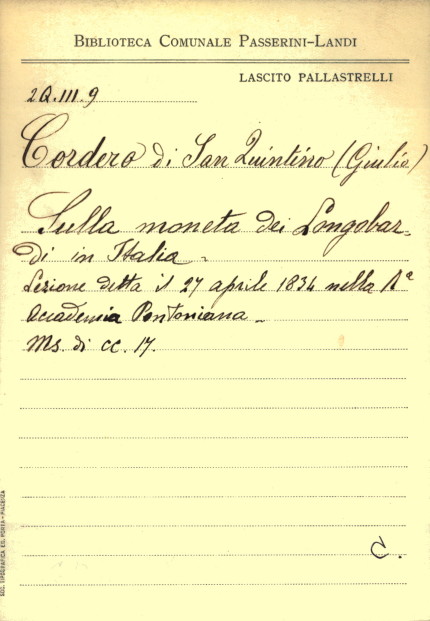 BIBLIOTECA COMUNALE PASSERINI-LANDI
LASCITO PALLASTRELLI
2Q.III.9
Cordero di San Quintino (Giulio)
Sulla moneta dei Longobar-
di in Italia -
Lezione detta il 27 aprile 1834 nella Rª
Accademia Pontoniana -
Ms. di cc. 17.
C.